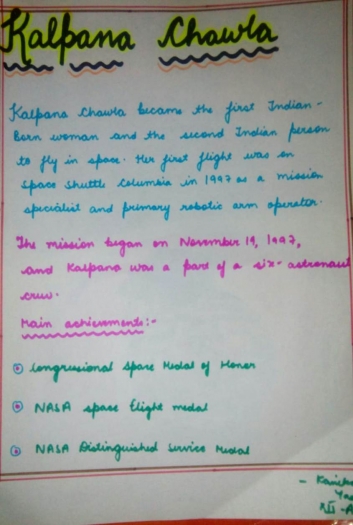 Kalpana Chawla
Kalpana Chawla became the first Indian-
Born woman and the second Indian person
to fly in space. Her first flight was on
Space Shuttle Columbia in 1997 as a mission
specialist and primary robotic arm operator.
The mission began on November 19, 1997,
and Kalpana was a part of a six-astronaut
crew.
Main achievements:-
Congressional Space Medal of Honor
NASA space flight medal
NASA Distinguished Service Medal
XII-A